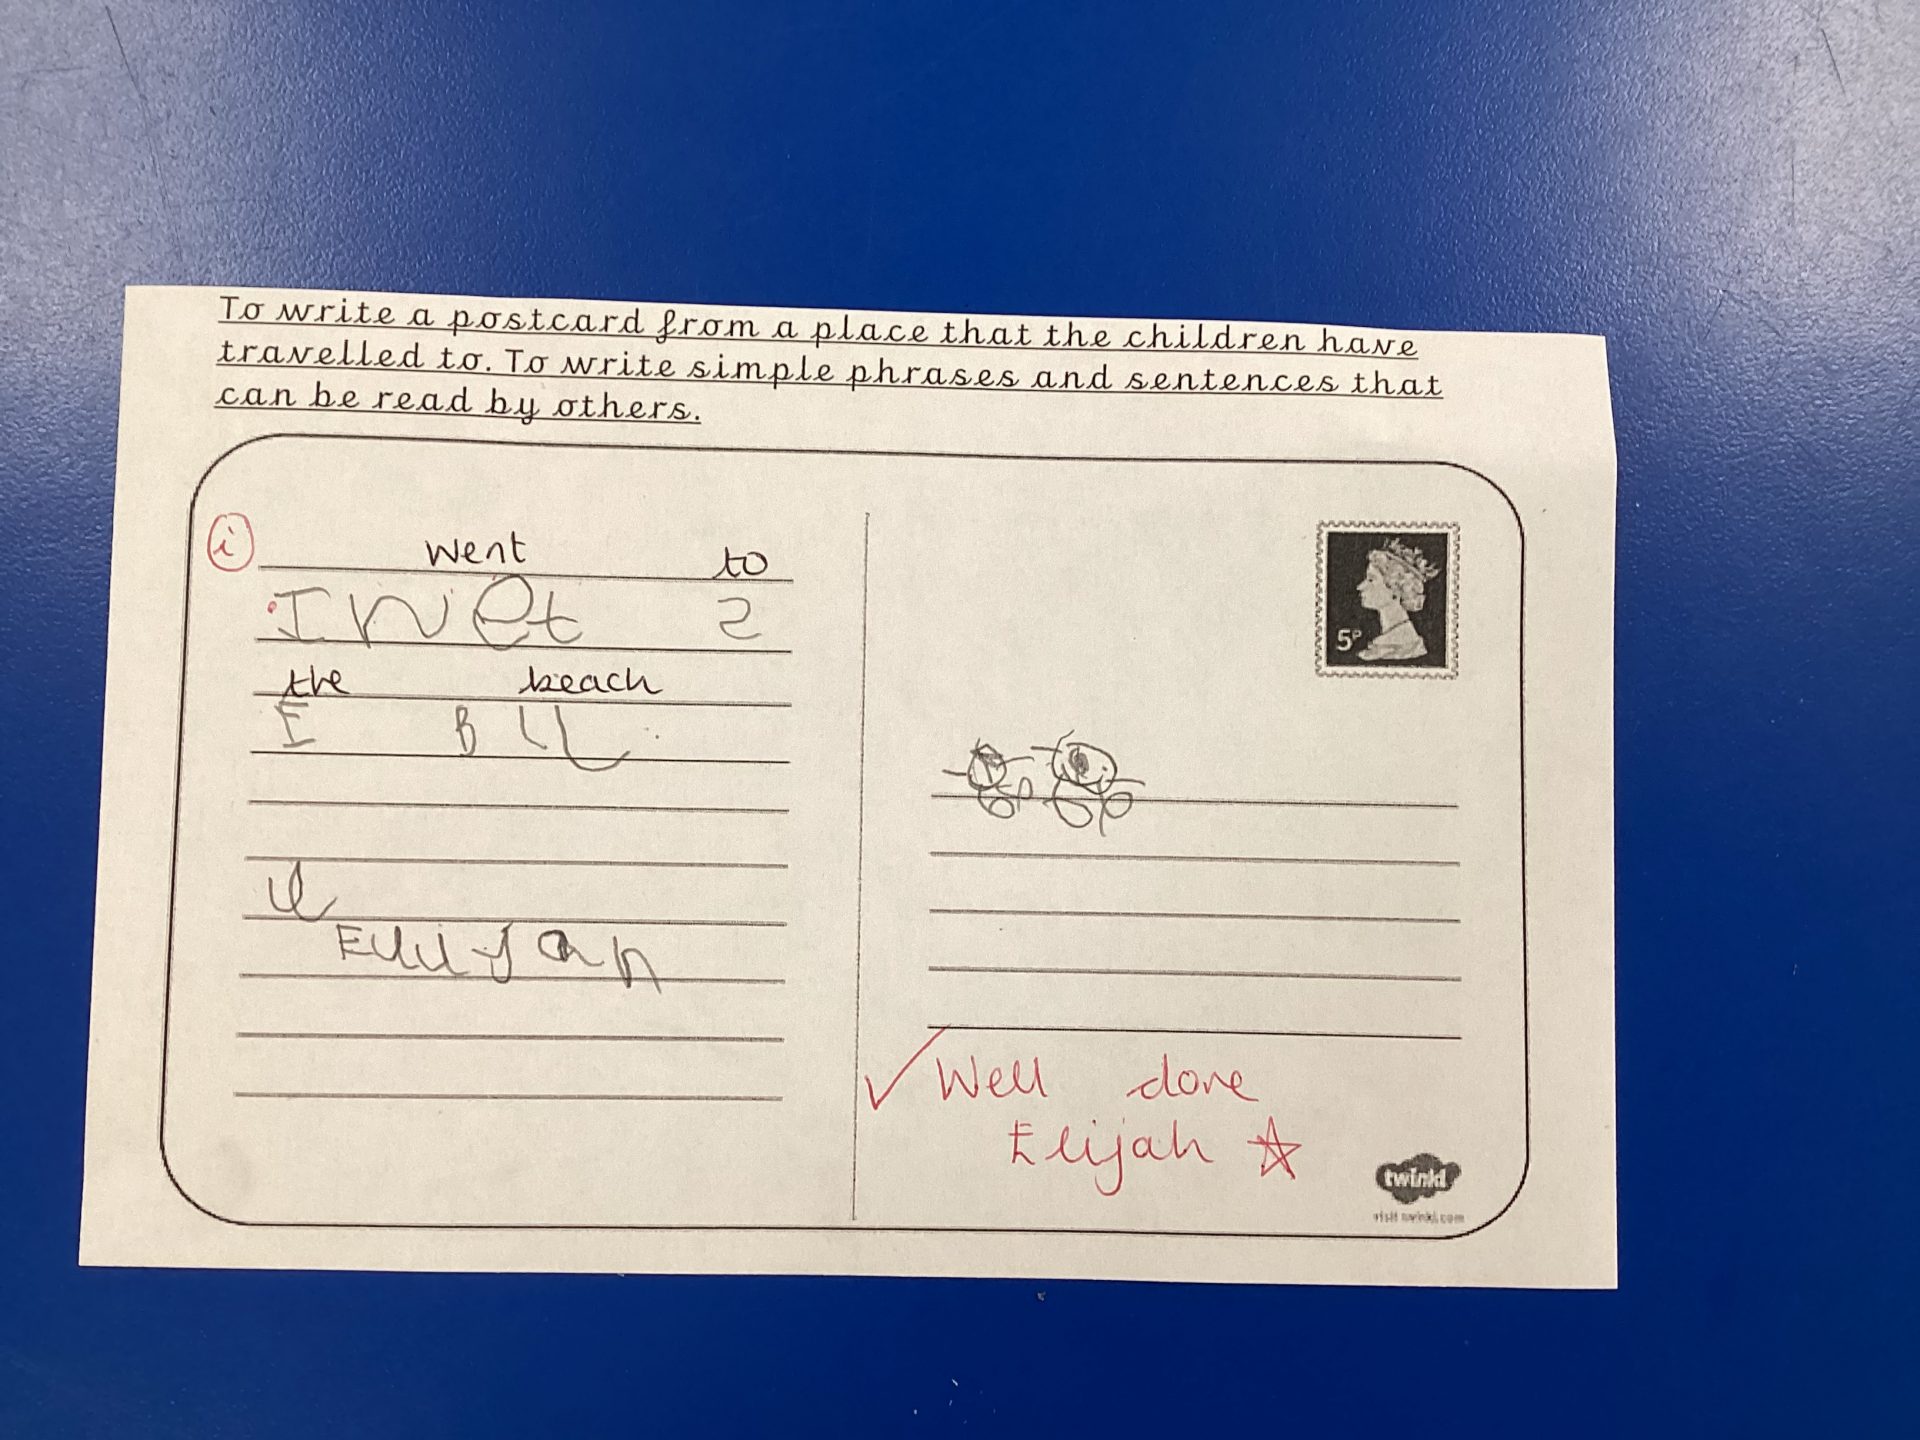 To write a postcard from a place that the children have
travelled to. To write simple phrases and sentences that
can be read by others.
i
went to
I wet 2
the beach
E B
Elijah
5P
✓ Well done
Elijah ☆
twinkl
visit twinkl.com